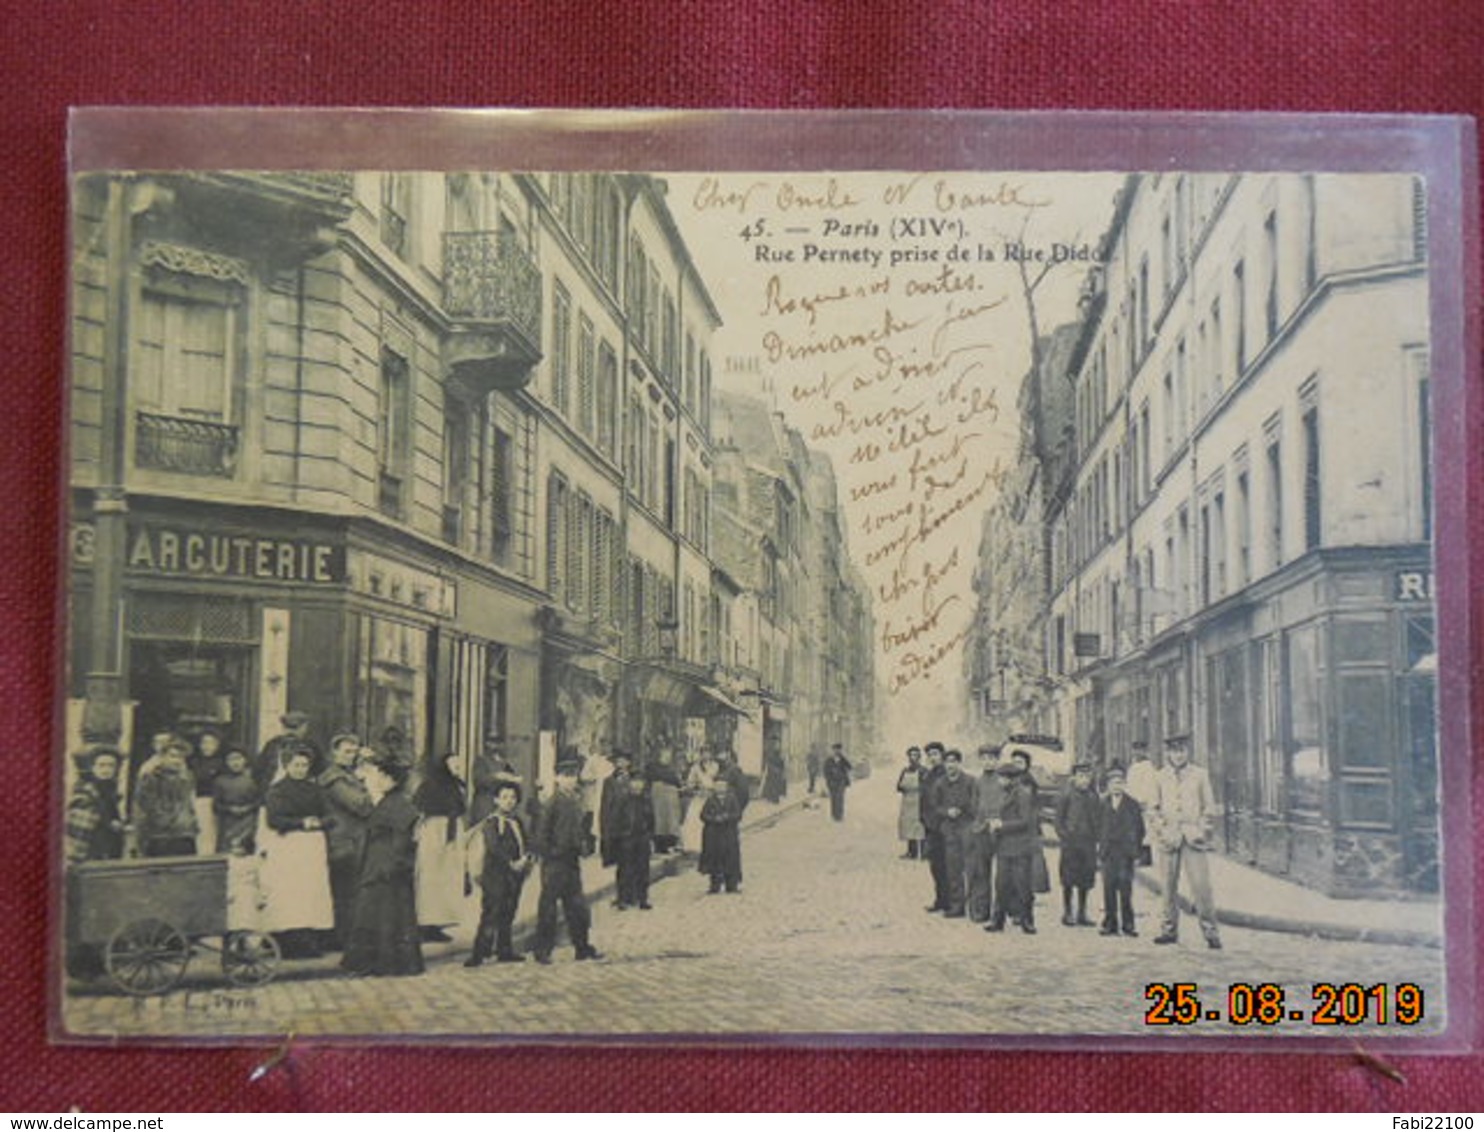 Cher Oncle et Tante
45. — Paris (XIVe).
Rue Pernety prise de la Rue Didot.
vos cartes.
Dimanche
adrien et
ils
vous font
tous des
compliments
adrien
ARCUTERIE
R
Paris
25.08.2019
www.delcampe.net
Fabi22100